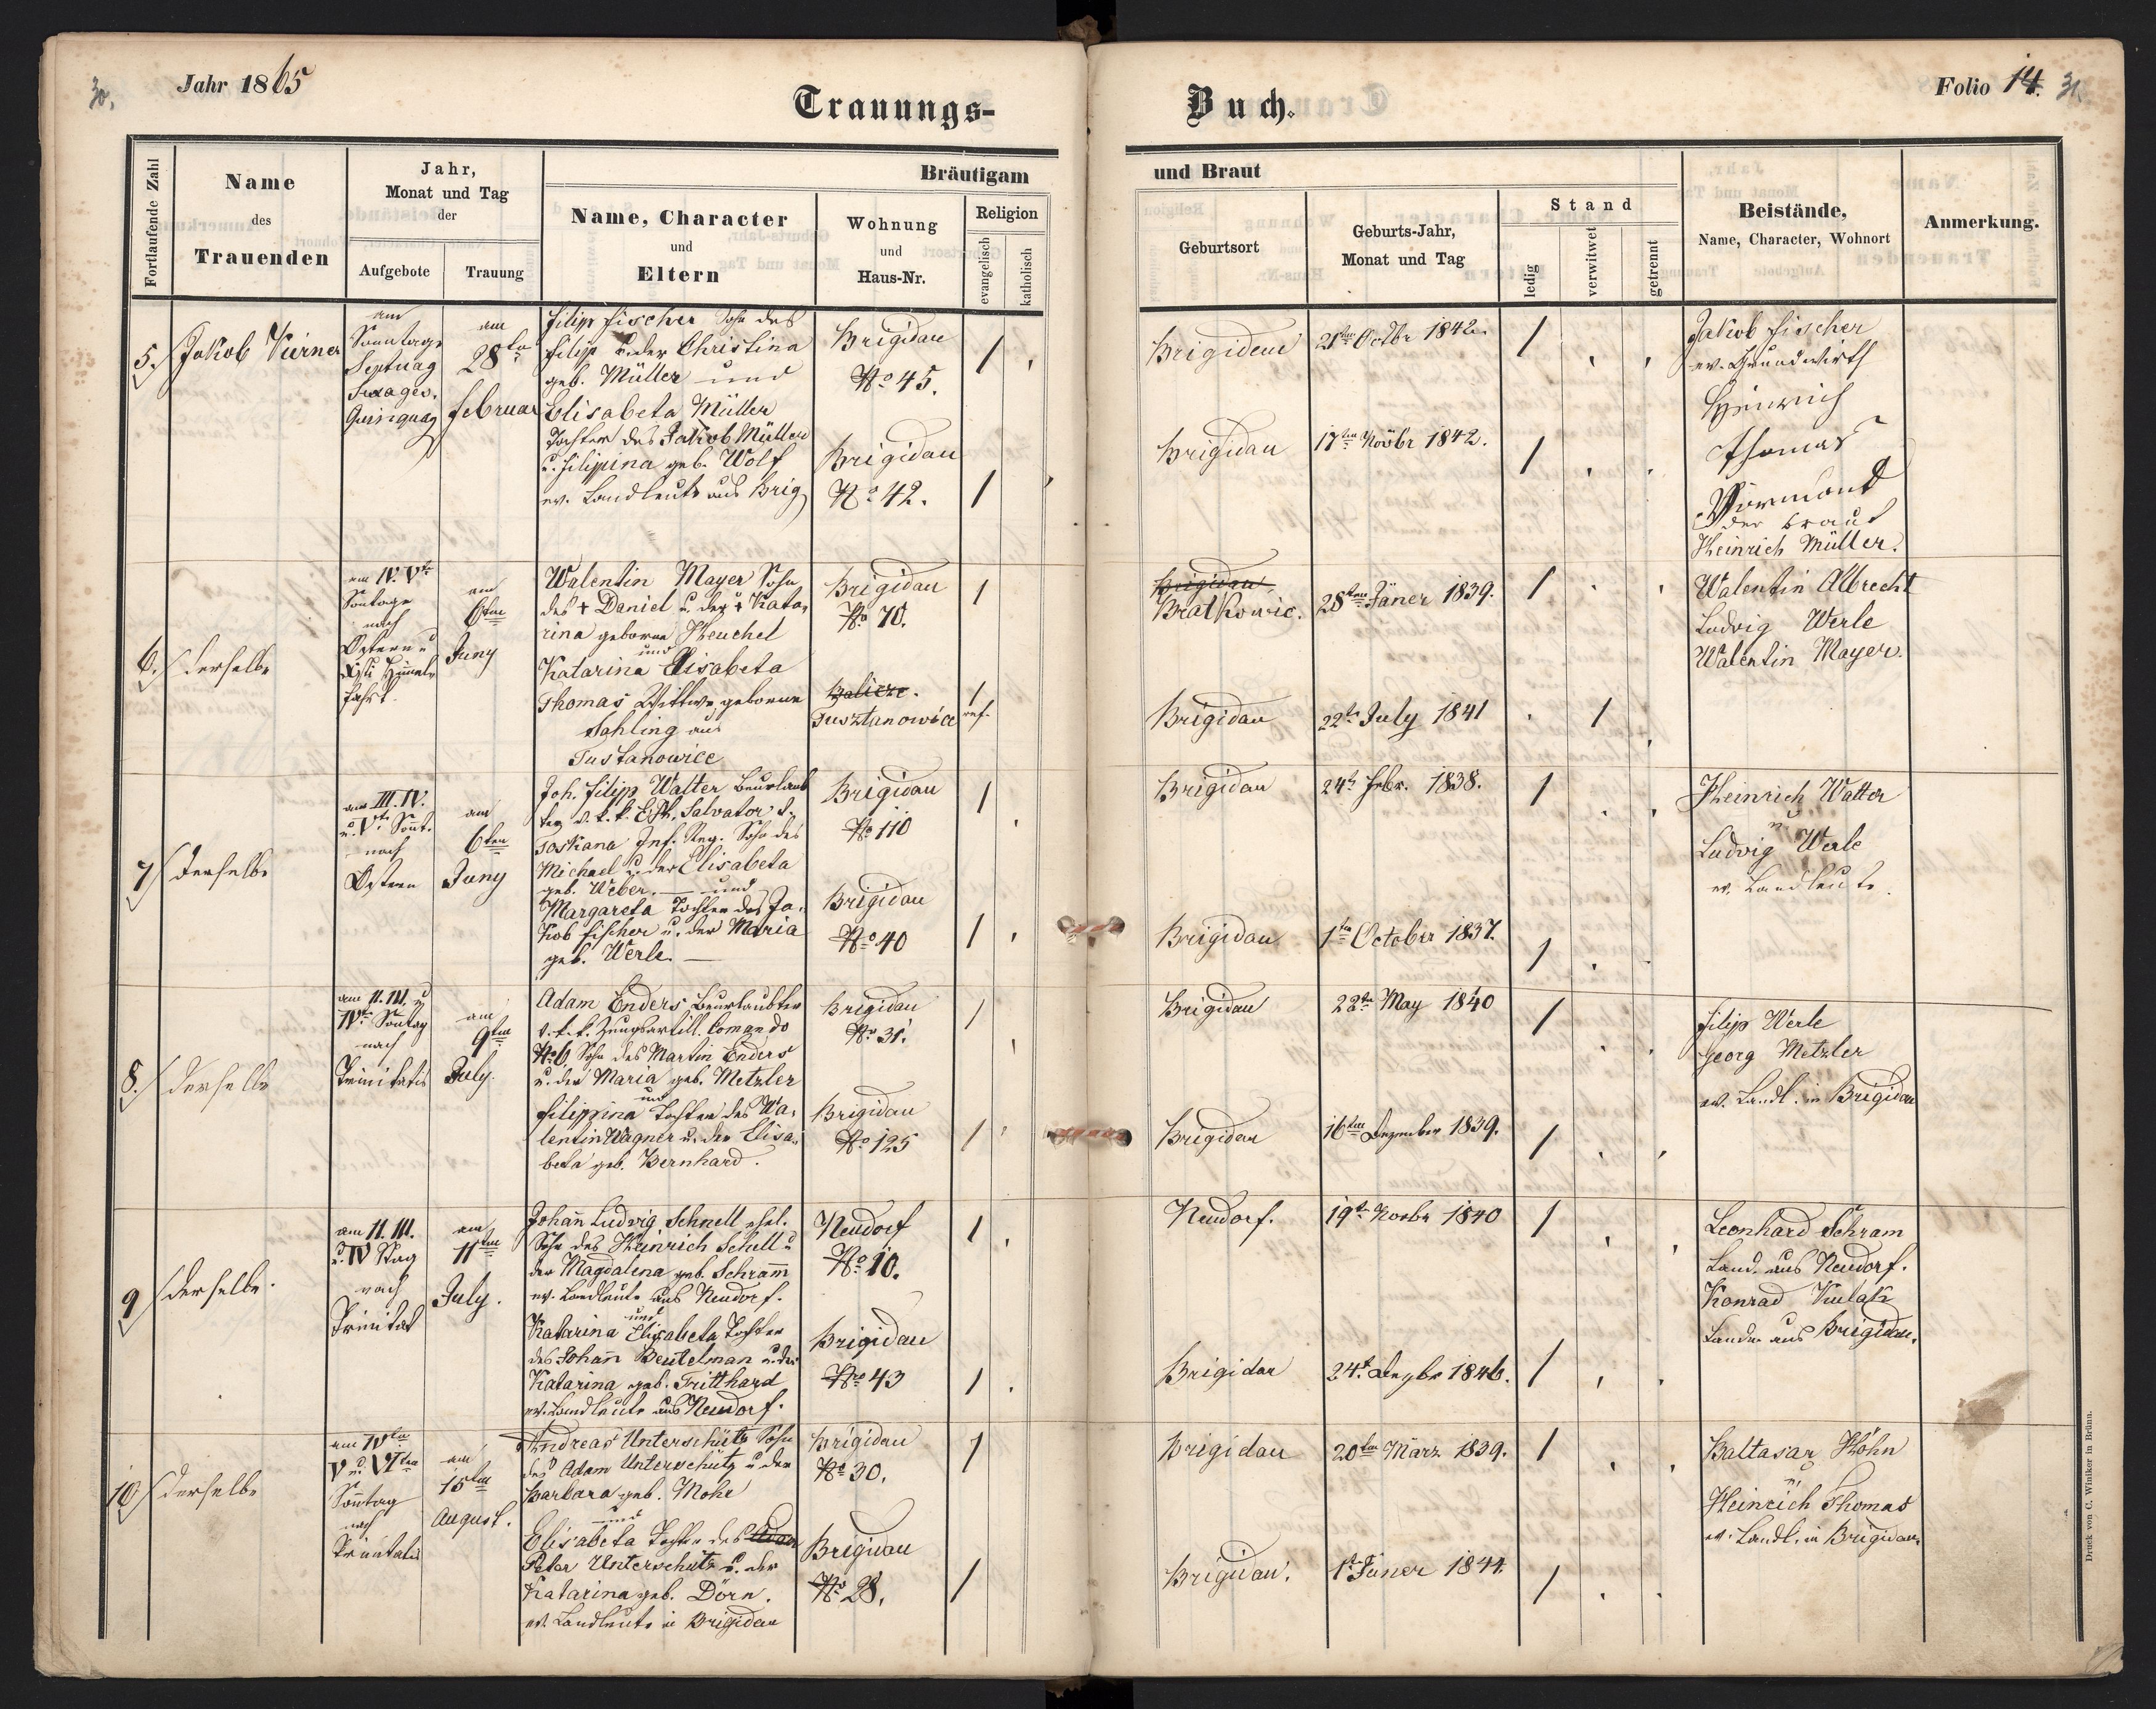 30.
Jahr 1865
Trauungs-
Buch.
Folio 14.
31.
Fortlaufende Zahl
Name
des
Trauenden
Jahr,
Monat und Tag
der
Aufgebote
Trauung
Bräutigam
Name, Character
und
Eltern
Wohnung
und
Haus-Nr.
Religion
evangelisch
katholisch
und Braut
Geburtsort
Geburts-Jahr,
Monat und Tag
Stand
ledig
verwitwet
getrennt
Beistände,
Name, Character, Wohnort
Anmerkung.
5.
Jakob
am
Sonntage
Septuag
Sexages.
Quinquag
am
28ten
Februar
Filip Fischer Sohn des
Filip u. der Christina
geb. Müller und
Elisabeta Müller
Tochter des Jakob Müller
u. Filipina geb. Wolf
ev. Landleute aus Brig
Brigidau
No 45.
Brigidau
No 42.
Brigidau
21ten Octbr 1842.
Brigidau
17ten Novbr 1842.
Jakob Fischer
ev. Grundwirth
Heinrich
Thomas
Vormund
der Braut
Heinrich Müller.
6.
derselbe
am IV. Vten
Sontage
nach
Ostern u
Xsti Himmel
fahrt.
am
6ten
Juny
Walentin Mayer Sohn
des + Daniel u. der + Kata-
rina geborne Heuchel
und
Katarina Elisabeta
Thomas Wittwe geborne
Sahling aus
Tustanowice
Brigidau
No 70.
Tusztanowice
ref.
Brigidau
Bratkowic.
28ten Jäner 1839.
Brigidau
22ten July 1841
Walentin Albrecht
Ludvig Werle
Walentin Mayer.
7
derselbe
am III. IV.
u. Vten Sont.
nach
Ostern
am
6ten
Juny
Joh. Filip Walter Beurlaub
ter d. k. k. EH. Salvator v.
Toskana Inf. Reg. Sohn des
Michael u. der Elisabeta
geb. Weber. — und
Margareta Tochter des Ja-
kob Fischer u. der Maria
geb. Werle. —
Brigidau
No 110
Brigidau
No 40
Brigidau
24ten Febr. 1838.
Brigidau
1ten October 1837.
Heinrich Walter
u
Ludvig Werle
ev. Landleute.
8.
derselbe
am II. III. u
IVten Sontag
nach
Trinitatis
am
9ten
July.
Adam Enders Beurlaubter
v. k. k. Zeugsartill. Comando
No 6, Sohn des Martin Enders
u. der Maria geb. Metzler
und
Filippina Tochter des Wa-
lentin Wagner u. der Elisa-
beta geb. Bernhard.
Brigidau
No 31.
Brigidau
No 125
Brigidau
22ten May 1840
Brigidau
16ten Dezember 1839.
Filip Werle
Georg Metzler
ev. Landl. in Brigidau
9
derselbe.
am II. III.
u. IV Stag
nach
Trinitat
am
11ten
July.
Johañ Ludvig Schnell ehel.
Sohn des Heinrich Schell u
der Magdalena geb. Schram̃
ev. Landleute aus Neudorf.
und
Katarina Elisabeta Tochter
des Johañ Beutelman u. der
Katarina geb. Tritthard
ev. Landleute aus Neudorf.
Neudorf
No 10.
Brigidau
Nro 43
Neudorf.
19ten Novbr 1840
Brigidau
24t. Dezbr 1846.
Leonhard Schram
Land. aus Neudorf.
Konrad Kulak
Landm aus Brigidau.
10
derselbe
am IVten
V u. VIten
Sontag
nach
Trinitatis
am
15ten
August.
Andreas Unterschütz Sohn
des Adam Unterschütz u. der
Barbara geb. Mohr
und
Elisabeta Tochter des Adam
Peter Unterschütz u. der
Katarina geb. Dörn.
ev. Landleute in Brigidau
Brigidau
No 30.
Brigidau
No 28.
Brigidau
20ten März 1839.
Brigidau.
1ten Jäner 1844.
Baltasar Höhn
u
Heinrich Thomas
ev. Landl. in Brigidau
Druck von C. Winiker in Brünn.